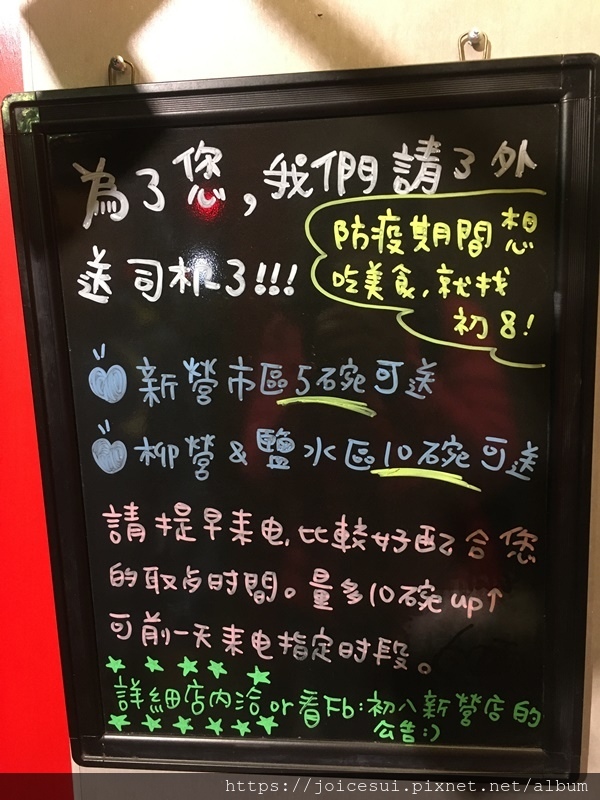 為了您,我們請了外
送司机了!!!
防疫期間想
吃美食,就找
初8!
新營市區5碗可送
柳營&鹽水區10碗可送
請提早来电,比較好配合您
的取点时間。量多10碗up↑
可前一天来电指定时段。
詳細店內洽or看Fb:初八新營店的
公告:)
https://joicesui.pixnet.net/album